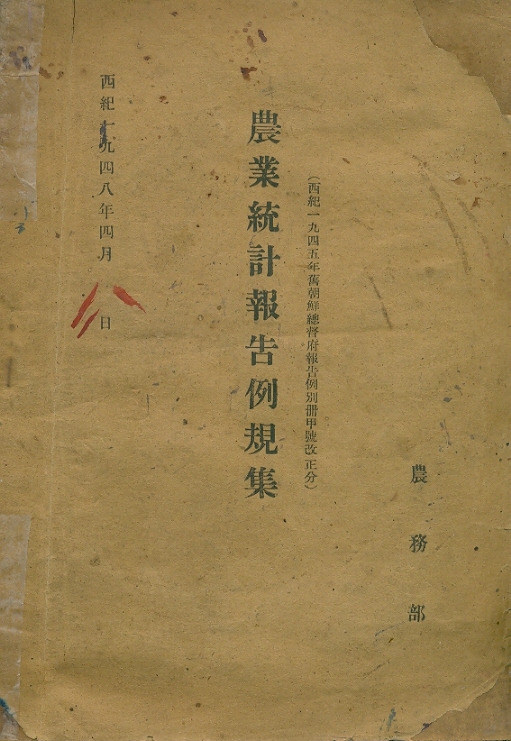 農務部
(西紀一九四五年舊朝鮮總督府報告例別冊甲號改正分)
農業統計報告例規集
西紀一九四八年四月 日